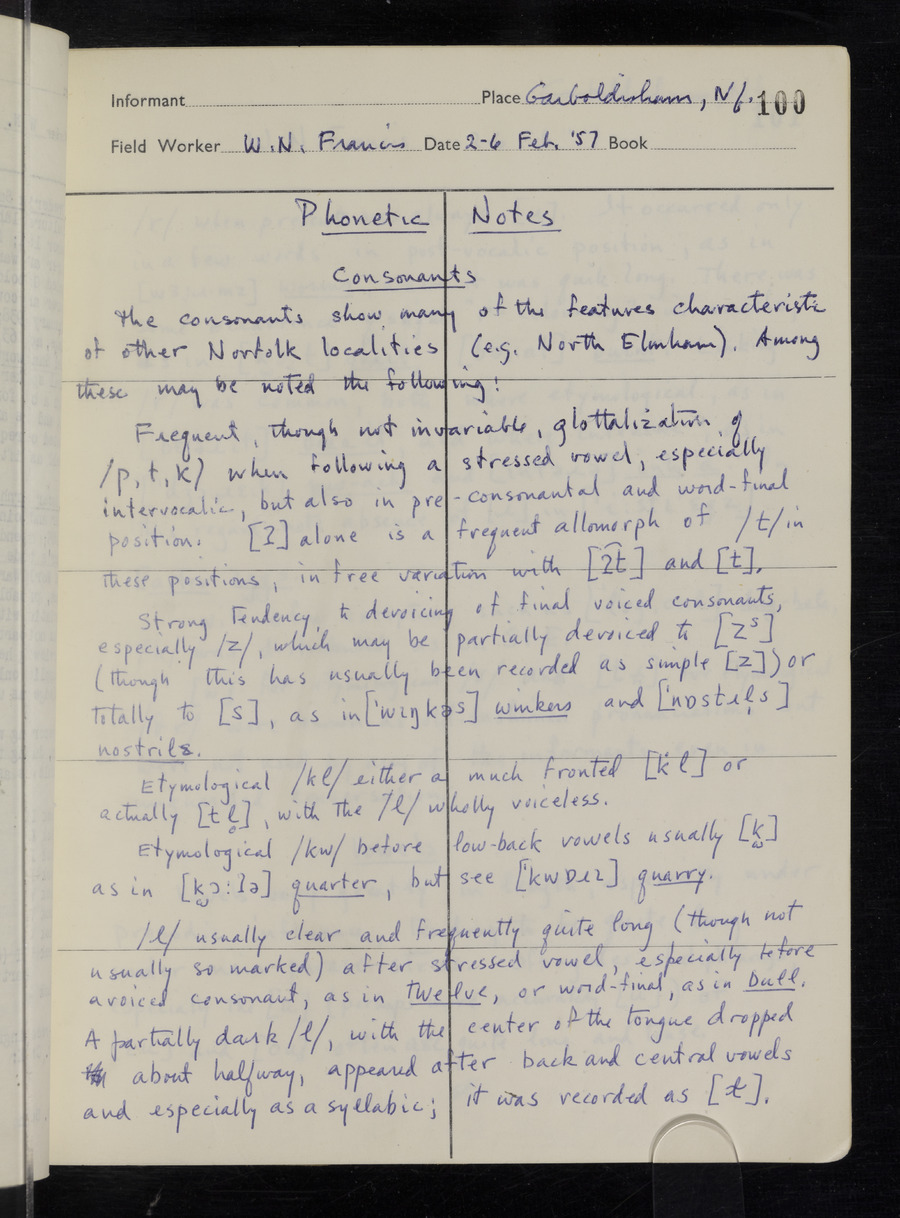 Informant Place Garboldisham, Nf. 100
Field Worker W.N. Francis Date 2-6 Feb. '57 Book
Phonetic Notes
Consonants
The consonants show many of the features characteristic
of other Norfolk localities (e.g. North Elmham). Among
these may be noted the following:
Frequent, though not invariable, glottalization of
/p, t, k/ when following a stressed vowel, especially
intervocalic, but also in pre-consonantal and word-final
position. [ʔ] alone is a frequent allomorph of /t/ in
these positions, in free variation with [ʔ͡t] and [t].
Strong tendency to devoicing of final voiced consonants,
especially /z/, which may be partially devoiced to [zˢ]
(though this has usually been recorded as simple [z]) or
totally to [s], as in ['wɪŋkəs] winkers and ['nɒstɪl̩s]
nostrils.
Etymological /kl/ either a much fronted [k̇l] or
actually [tl̥], with the /l/ wholly voiceless.
Etymological /kw/ before low-back vowels usually [k̫]
as in [k̫ɔ:ʔə] quarter, but see ['kwɒɹɪ] quarry.
/l/ usually clear and frequently quite long (though not
usually so marked) after stressed vowel, especially before
a voiced consonant, as in twelve, or word-final, as in dull.
A partially dark /l/, with the center of the tongue dropped
about halfway, appeared after back and central vowels
and especially as a syllabic; it was recorded as [ɫ].